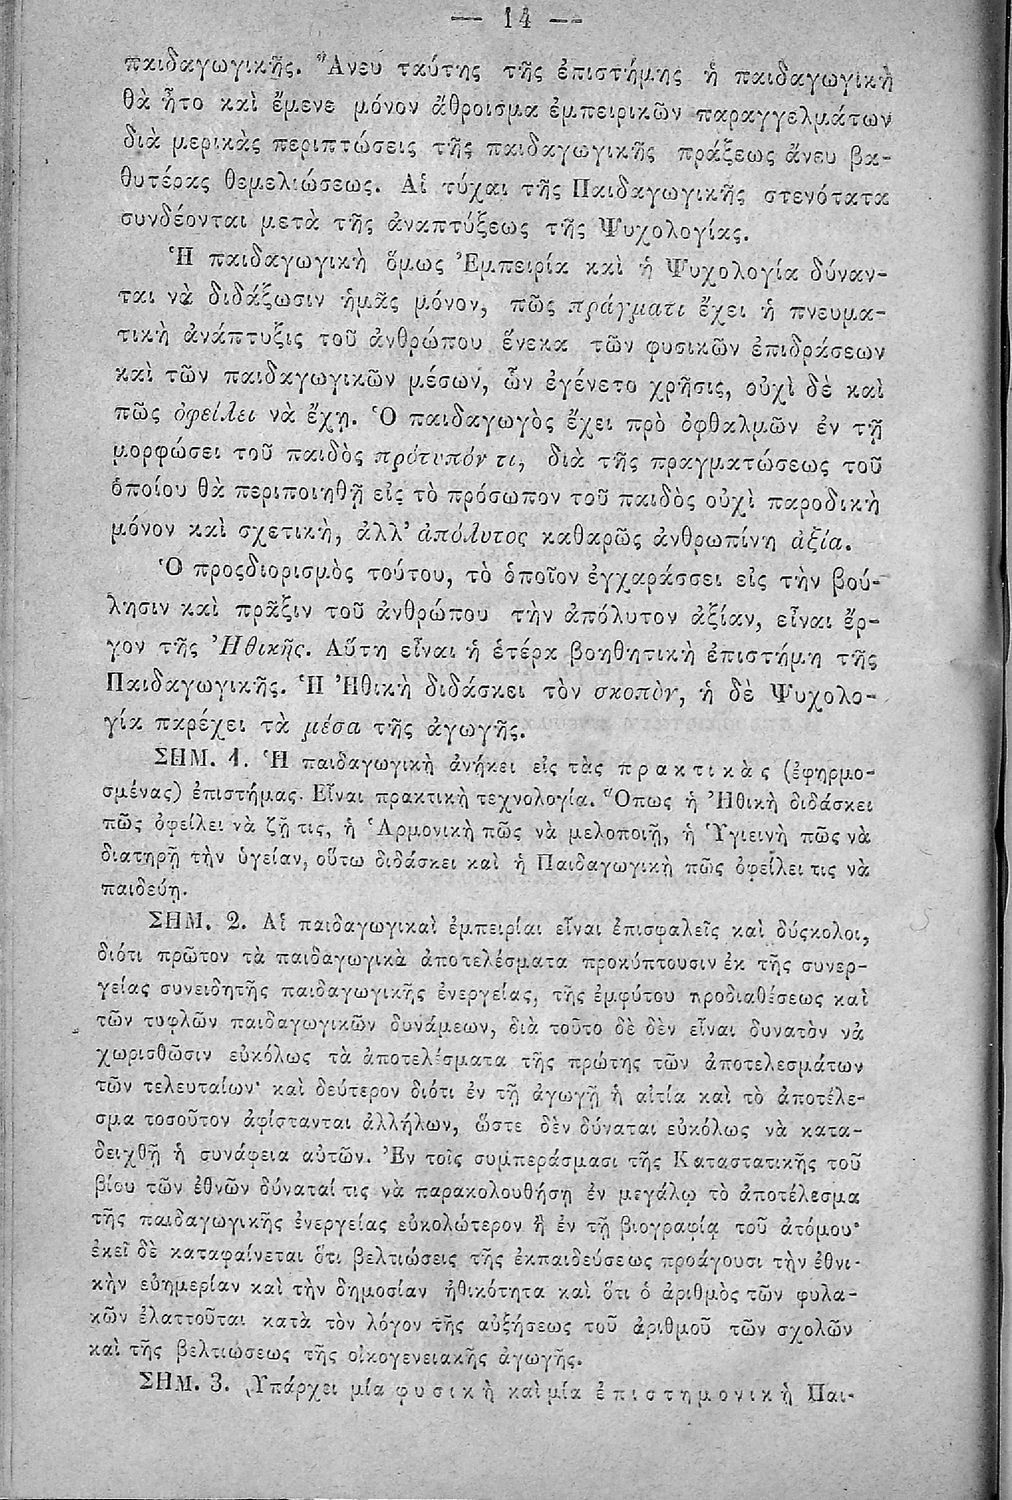 — 14 —
παιδαγωγικῆς. Ἄνευ ταύτης τῆς ἐπιστήμης ἡ παιδαγωγικὴ
θὰ ἦτο καὶ ἔμενε μόνον ἄθροισμα ἐμπειρικῶν παραγγελμάτων
διὰ μερικὰς περιπτώσεις τῆς παιδαγωγικῆς πράξεως ἄνευ βα-
θυτέρας θεμελιώσεως. Αἱ τύχαι τῆς Παιδαγωγικῆς στενότατα
συνδέονται μετὰ τῆς ἀναπτύξεως τῆς Ψυχολογίας.
Ἡ παιδαγωγικὴ ὅμως Ἐμπειρία καὶ ἡ Ψυχολογία δύναν-
ται νὰ διδάξωσιν ἡμᾶς μόνον, πῶς πράγματι ἔχει ἡ πνευμα-
τικὴ ἀνάπτυξις τοῦ ἀνθρώπου ἕνεκα τῶν φυσικῶν ἐπιδράσεων
καὶ τῶν παιδαγωγικῶν μέσων, ὧν ἐγένετο χρῆσις, οὐχὶ δὲ καὶ
πῶς ὀφείλει νὰ ἔχῃ. Ὁ παιδαγωγὸς ἔχει πρὸ ὀφθαλμῶν ἐν τῇ
μορφώσει τοῦ παιδὸς πρότυπόν τι, διὰ τῆς πραγματώσεως τοῦ
ὁποίου θὰ περιποιηθῇ εἰς τὸ πρόσωπον τοῦ παιδὸς οὐχὶ παροδικὴ
μόνον καὶ σχετικὴ, ἀλλ' ἀπόλυτος καθαρῶς ἀνθρωπίνη ἀξία.
Ὁ προςδιορισμὸς τούτου, τὸ ὁποῖον ἐγχαράσσει εἰς τὴν βού-
λησιν καὶ πρᾶξιν τοῦ ἀνθρώπου τὴν ἀπόλυτον ἀξίαν, εἶναι ἔρ-
γον τῆς Ἠθικῆς. Αὕτη εἶναι ἡ ἑτέρα βοηθητικὴ ἐπιστήμη τῆς
Παιδαγωγικῆς. Ἡ Ἠθικὴ διδάσκει τὸν σκοπὸν, ἡ δὲ Ψυχολο-
γία παρέχει τὰ μέσα τῆς ἀγωγῆς.
ΣΗΜ. 1. Ἡ παιδαγωγικὴ ἀνήκει εἰς τὰς πρακτικὰς (ἐφηρμο-
σμένας) ἐπιστήμας. Εἶναι πρακτικὴ τεχνολογία. Ὅπως ἡ Ἠθικὴ διδάσκει
πῶς ὀφείλει νὰ ζῇ τις, ἡ Ἁρμονικὴ πῶς νὰ μελοποιῇ, ἡ Ὑγιεινὴ πῶς νὰ
διατηρῇ τὴν ὑγείαν, οὕτω διδάσκει καὶ ἡ Παιδαγωγικὴ πῶς ὀφείλει τις νὰ
παιδεύῃ.
ΣΗΜ. 2. Αἱ παιδαγωγικαὶ ἐμπειρίαι εἶναι ἐπισφαλεῖς καὶ δύσκολοι,
διότι πρῶτον τὰ παιδαγωγικὰ ἀποτελέσματα προκύπτουσιν ἐκ τῆς συνερ-
γείας συνειδητῆς παιδαγωγικῆς ἐνεργείας, τῆς ἐμφύτου προδιαθέσεως καὶ
τῶν τυφλῶν παιδαγωγικῶν δυνάμεων, διὰ τοῦτο δὲ δὲν εἶναι δυνατὸν νὰ
χωρισθῶσιν εὐκόλως τὰ ἀποτελέσματα τῆς πρώτης τῶν ἀποτελεσμάτων
τῶν τελευταίων· καὶ δεύτερον διότι ἐν τῇ ἀγωγῇ ἡ αἰτία καὶ τὸ ἀποτέλε-
σμα τοσοῦτον ἀφίστανται ἀλλήλων, ὥστε δὲν δύναται εὐκόλως νὰ κατα-
δειχθῇ ἡ συνάφεια αὐτῶν. Ἐν τοῖς συμπεράσμασι τῆς Καταστατικῆς τοῦ
βίου τῶν ἐθνῶν δύναταί τις νὰ παρακολουθήσῃ ἐν μεγάλῳ τὸ ἀποτέλεσμα
τῆς παιδαγωγικῆς ἐνεργείας εὐκολώτερον ἢ ἐν τῇ βιογραφίᾳ τοῦ ἀτόμου·
ἐκεῖ δὲ καταφαίνεται ὅτι βελτιώσεις τῆς ἐκπαιδεύσεως προάγουσι τὴν ἐθνι-
κὴν εὐημερίαν καὶ τὴν δημοσίαν ἠθικότητα καὶ ὅτι ὁ ἀριθμὸς τῶν φυλα-
κῶν ἐλαττοῦται κατὰ τὸν λόγον τῆς αὐξήσεως τοῦ ἀριθμοῦ τῶν σχολῶν
καὶ τῆς βελτιώσεως τῆς οἰκογενειακῆς ἀγωγῆς.
ΣΗΜ. 3. Ὑπάρχει μία φυσικὴ καὶ μία ἐπιστημονικὴ Παι-